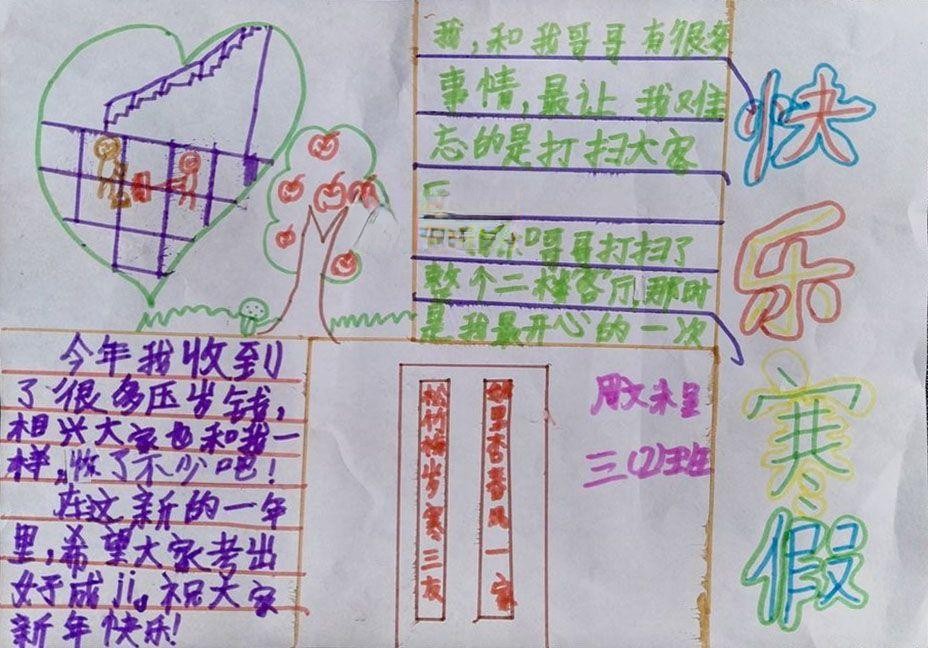 我,和我哥哥有很多
事情,最让 我又住
忘的是打扫大客
厅
哥哥打扫了
整个二楼客厅,那时
是我最开心的一次
快
乐
寒
假
今年,我收到
了很多压岁钱,
相兴大家也和我一
样,收了不少吧!
在这新的一年
里,希望大家考出
好成ji。祝大家
新年快乐!
松竹梅岁寒三友
桃里杏春风一家
三(2)班